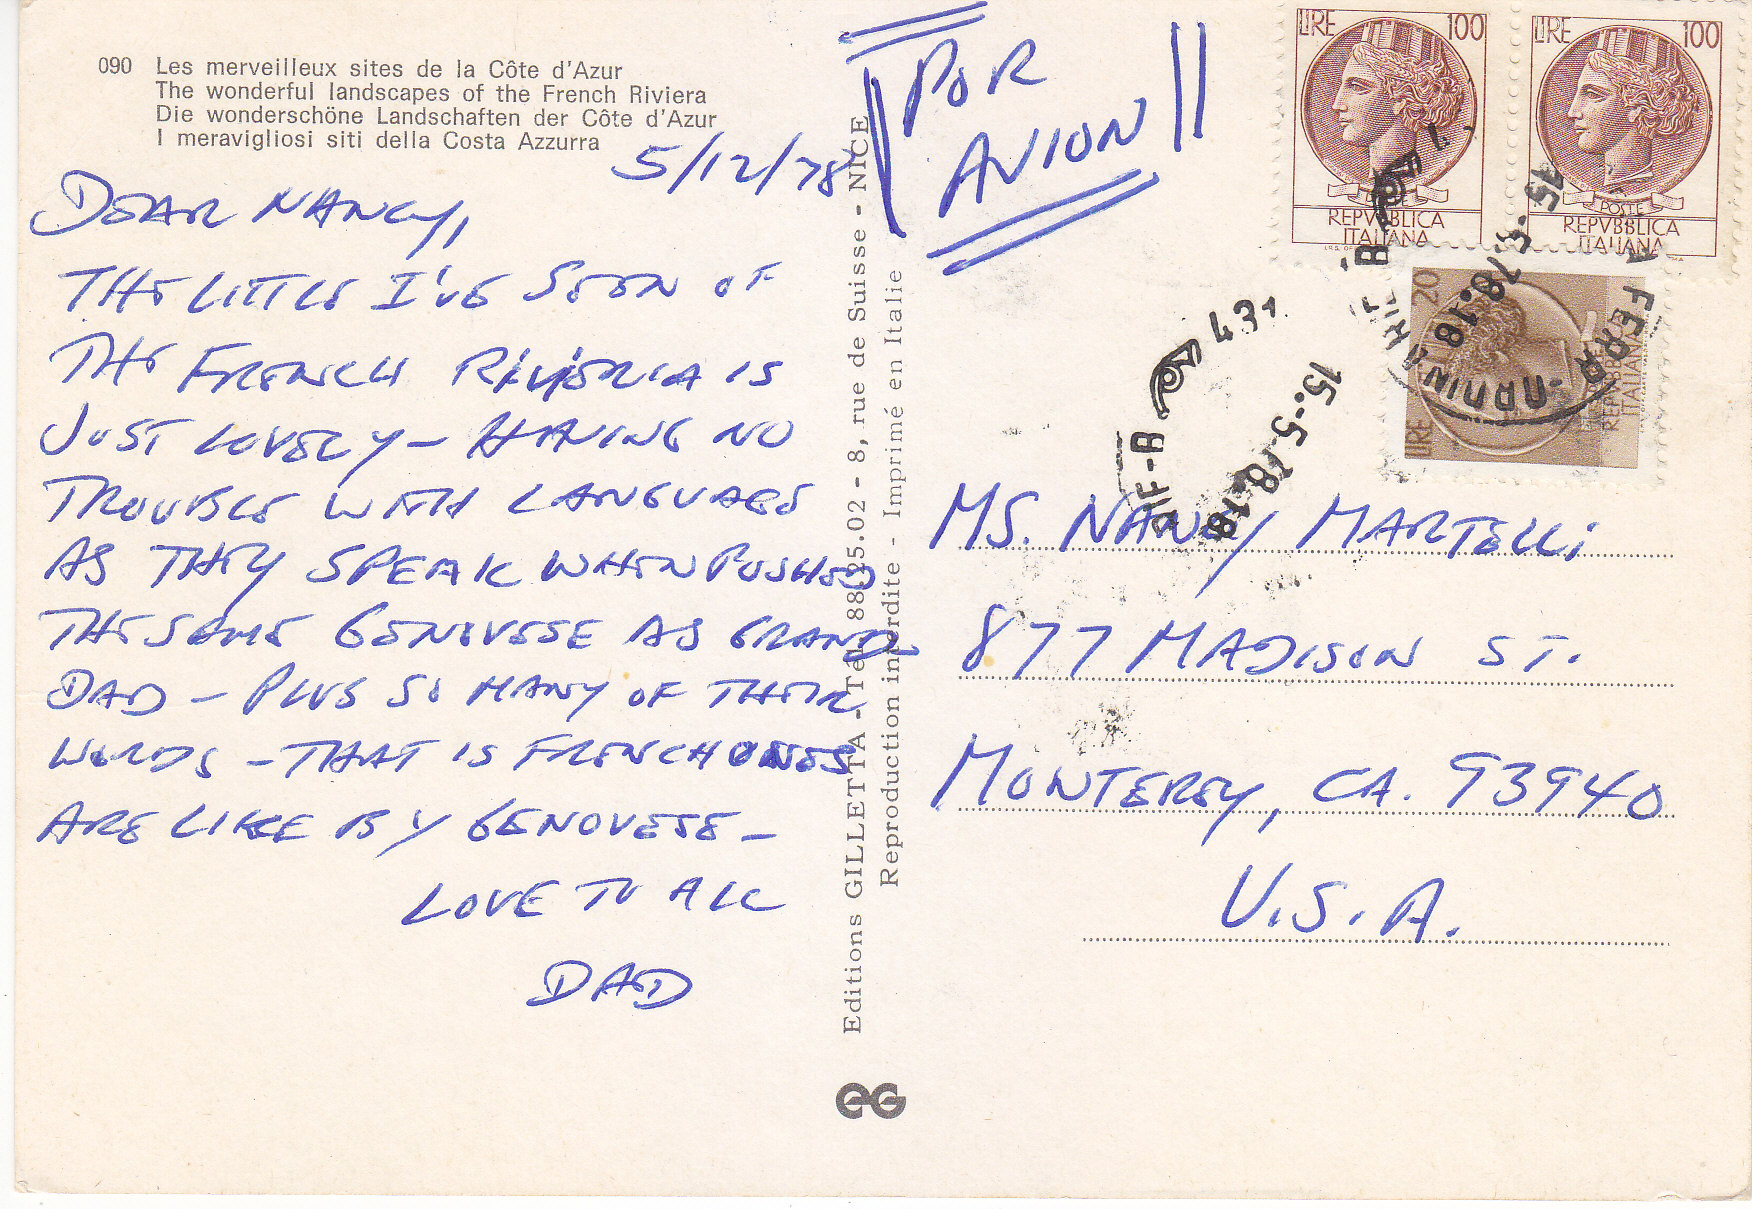 090 Les merveilleux sites de la Côte d'Azur
The wonderful landscapes of the French Riviera
Die wunderschöne Landschaften der Côte d'Azur
I meravigliosi siti della Costa Azzurra
5/12/78
DEAR NANCY,
THE LITTLE I'VE SEEN OF
THE FRENCH RIVIERIA IS
JUST LOVELY - HAVING NO
TROUBLE WITH LANGUAGE
AS THEY SPEAK WHEN PUSHED
THE SAME GENOVESE AS GRAND
DAD - PLUS SO MANY OF THEIR
WORDS - THAT IS FRENCH ONES
ARE LIKE BY GENOVESE -
LOVE TO ALL
DAD
Editions GILLETTA - Tél. 88.25.02 - 8, rue de Suisse - NICE
Reproduction interdite - Imprimé en Italie
EG
POR
AVION
LIRE 100
POSTE
REPVBBLICA
ITALIANA
LIRE 100
POSTE
REPVBBLICA
ITALIANA
LIRE 20
REPVBBLICA
ITALIANA
15.-5.78.18
15.-5.78.18
MS. NANCY MARTELLI
877 MADISON ST.
MONTEREY, CA. 93940
U.S.A.